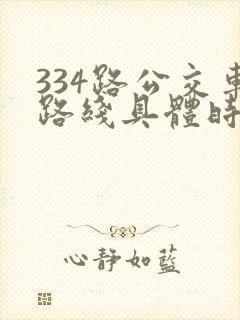 334路公交車
路綫具體時
心靜如藍